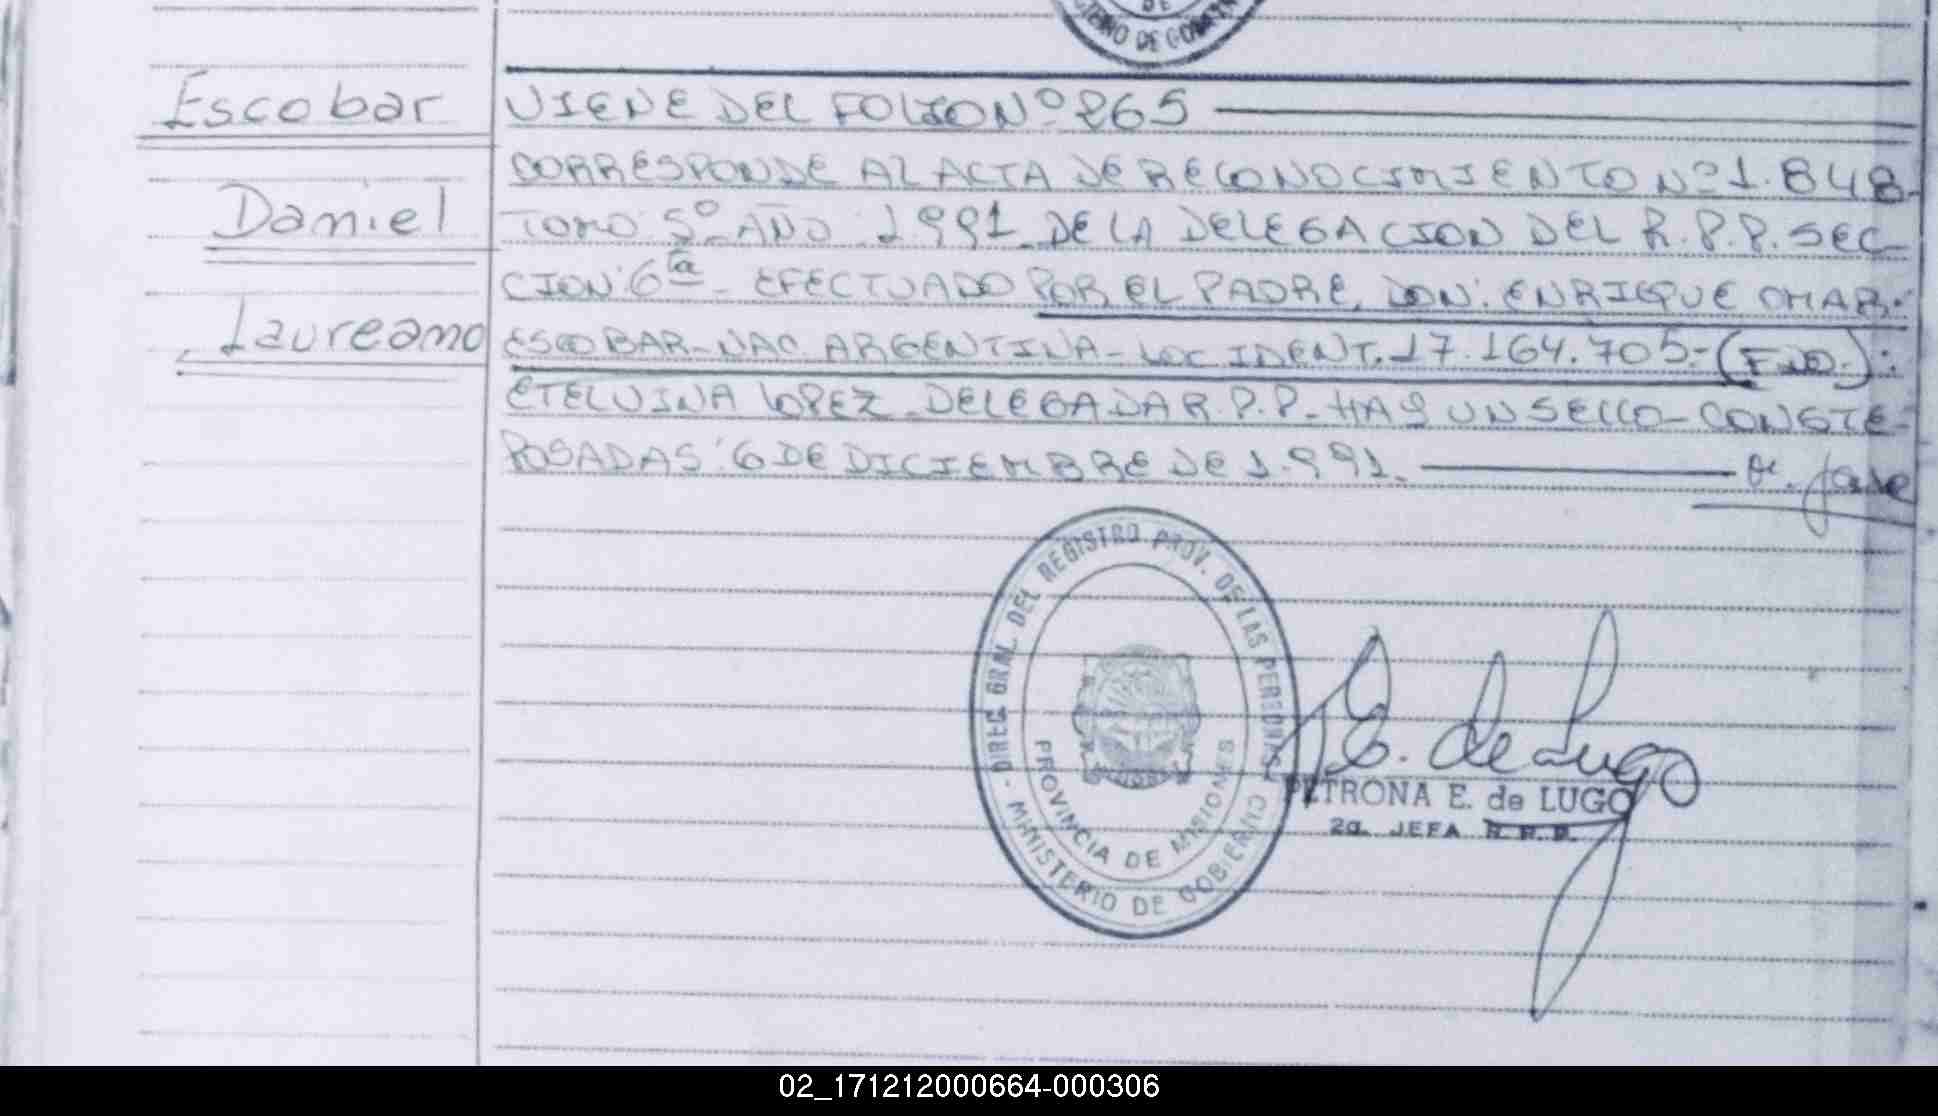 DE
Escobar
VIENE DEL FOLIO Nº 265
CORRESPONDE AL ACTA DE RECONOCIMIENTO Nº 1.848-
Daniel
TOMO 5º AÑO 1991 DE LA DELEGACION DEL R.P.P. SEC-
CION 6ª - EFECTUADO POR EL PADRE, DON: ENRIQUE OMAR
Laureano
ESCOBAR - NAC. ARGENTINA - DOC IDENT. 17.164.705 - (FDO.):
ETELVINA LOPEZ - DELEGADA R.P.P. - HAY UN SELLO - CONSTE -
POSADAS: 6 DE DICIEMBRE DE 1.991.
DIREC. GRAL. DEL REGISTRO PROV. DE LAS PERSONAS
PROVINCIA DE MISIONES
MINISTERIO DE GOBIERNO
E. de Lugo
PETRONA E. de LUGO
2a. JEFA R.P.P.
02_171212000664-000306